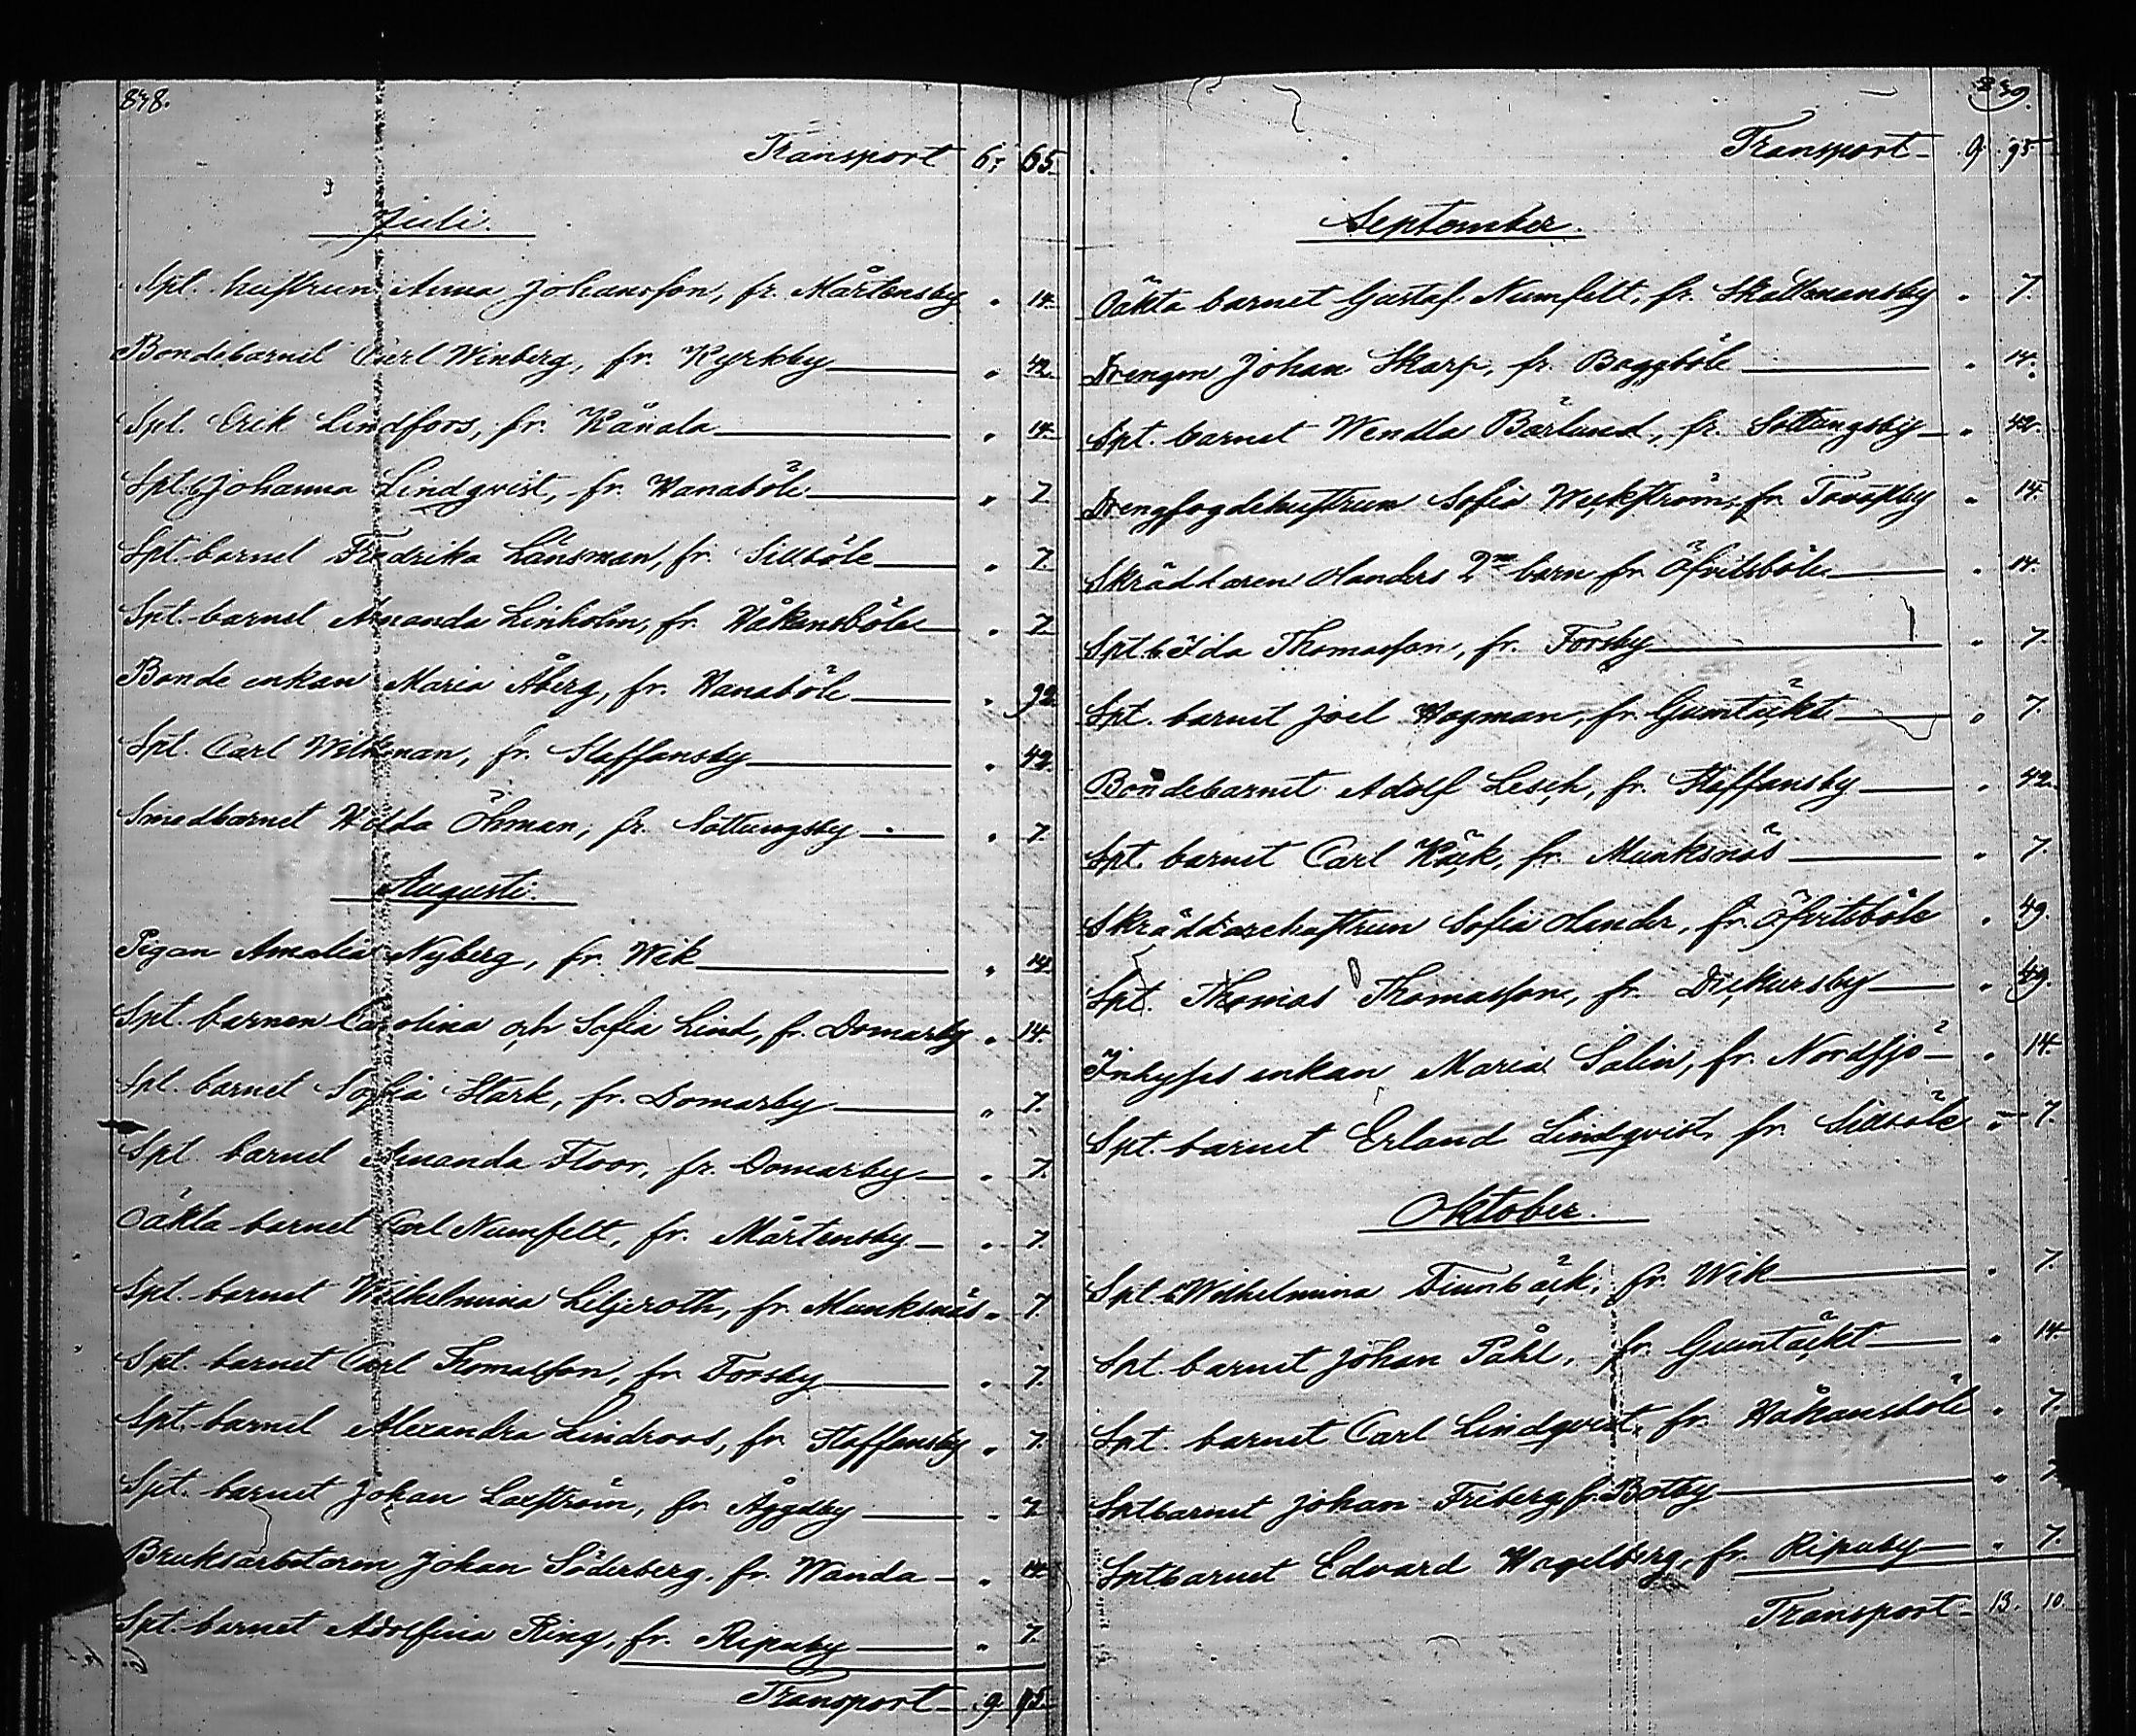 838.
Transport 6, 65
Juli.
Spt. hustrun Anna Johansson, fr. Mårtensby " 14.
Bondebarnet Carl Winberg, fr. Kyrkby " 42.
Spt. Erik Lindfors, fr. Kånala " 14.
Spt. b Johanna Lindqvist, fr. Hanaböle " 7
Spt. barnet Fredrika Länsman, fr. Sillböle " 7
Spt. barnet Amanda Linholm, fr. Håkansböle " 7
Bonde enkan Maria Åberg, fr. Hanaböle "
Spt. Carl Wikman, fr. Staffansby " 42
Smedbarnet Hilda Öhman, fr. Sottungsby " 7.
Augusti.
Pigan Amalia Nyberg, fr. Wik " 14
Spt. barnen Carolina och Sofia Lind, fr. Domarby " 14.
Spt. barnet Sofia Stark, fr. Domarby " 7.
Spt barnet Amanda Floor, fr. Domarby " 7.
Oäkta barnet Carl Numfelt, fr. Mårtensby " 7.
Spt. barnet Wilhelmina Liljeroth, fr. Munksnäs " 7
Spt. barnet Carl Thomasson, fr. Forsby " 7.
Spt. barnet Alexandra Lindroos, fr. Staffansby " 7.
Spt. barnet Johan Laxström, fr. Åggelby " 7.
Bruksarbetaren Johan Söderberg, fr. Wanda " 14.
Spt. barnet Adolfina Ring, fr. Ripuby " 7.
Transport 9 95
839.
Transport 9. 95
September.
Oäkta barnet Gustaf Numfelt, fr. Skattmansby " 7.
Drengen Johan Skarp, fr. Baggböle " 14.
Spt. barnet Wendla Bärlund, fr. Sottungsby " 42.
Drengfogdehustrun Sofia Weckström, fr. Tavastby " 14.
Skräddaren Olanders 2ne barn fr. Öfvitsböle " 14.
Spt. b. Ida Thomasson, fr. Forsby " 7
Spt. barnet Joel Hagman, fr. Gumtäckt " 7.
Bondebarnet Adolf Lesch, fr. Staffansby " 42.
Spt. barnet Carl Käck, fr. Munksnäs " 7.
Skräddarehustrun Sofia Olander, fr. Öfvitsböle " 49.
Spt. Thomas Thomasson, fr. Dickursby " 49.
Inhyses enkan Maria Salin, fr. Nordsjö " 14.
Spt. barnet Erland Lindqvist, fr. Sillböle " 7.
Oktober.
Spt. b Wilhelmina Tiunbäck, fr. Wik " 7.
Spt. barnet Johan Påhl, fr. Gumtäckt " 14.
Spt. barnet Carl Lindqvist, fr. Håkansböle " 7.
Sptbarnet Johan Friberg fr. Botby " 7
Sptbarnet Edvard Hagelberg, fr. Ripuby " 7.
Transport 13. 10